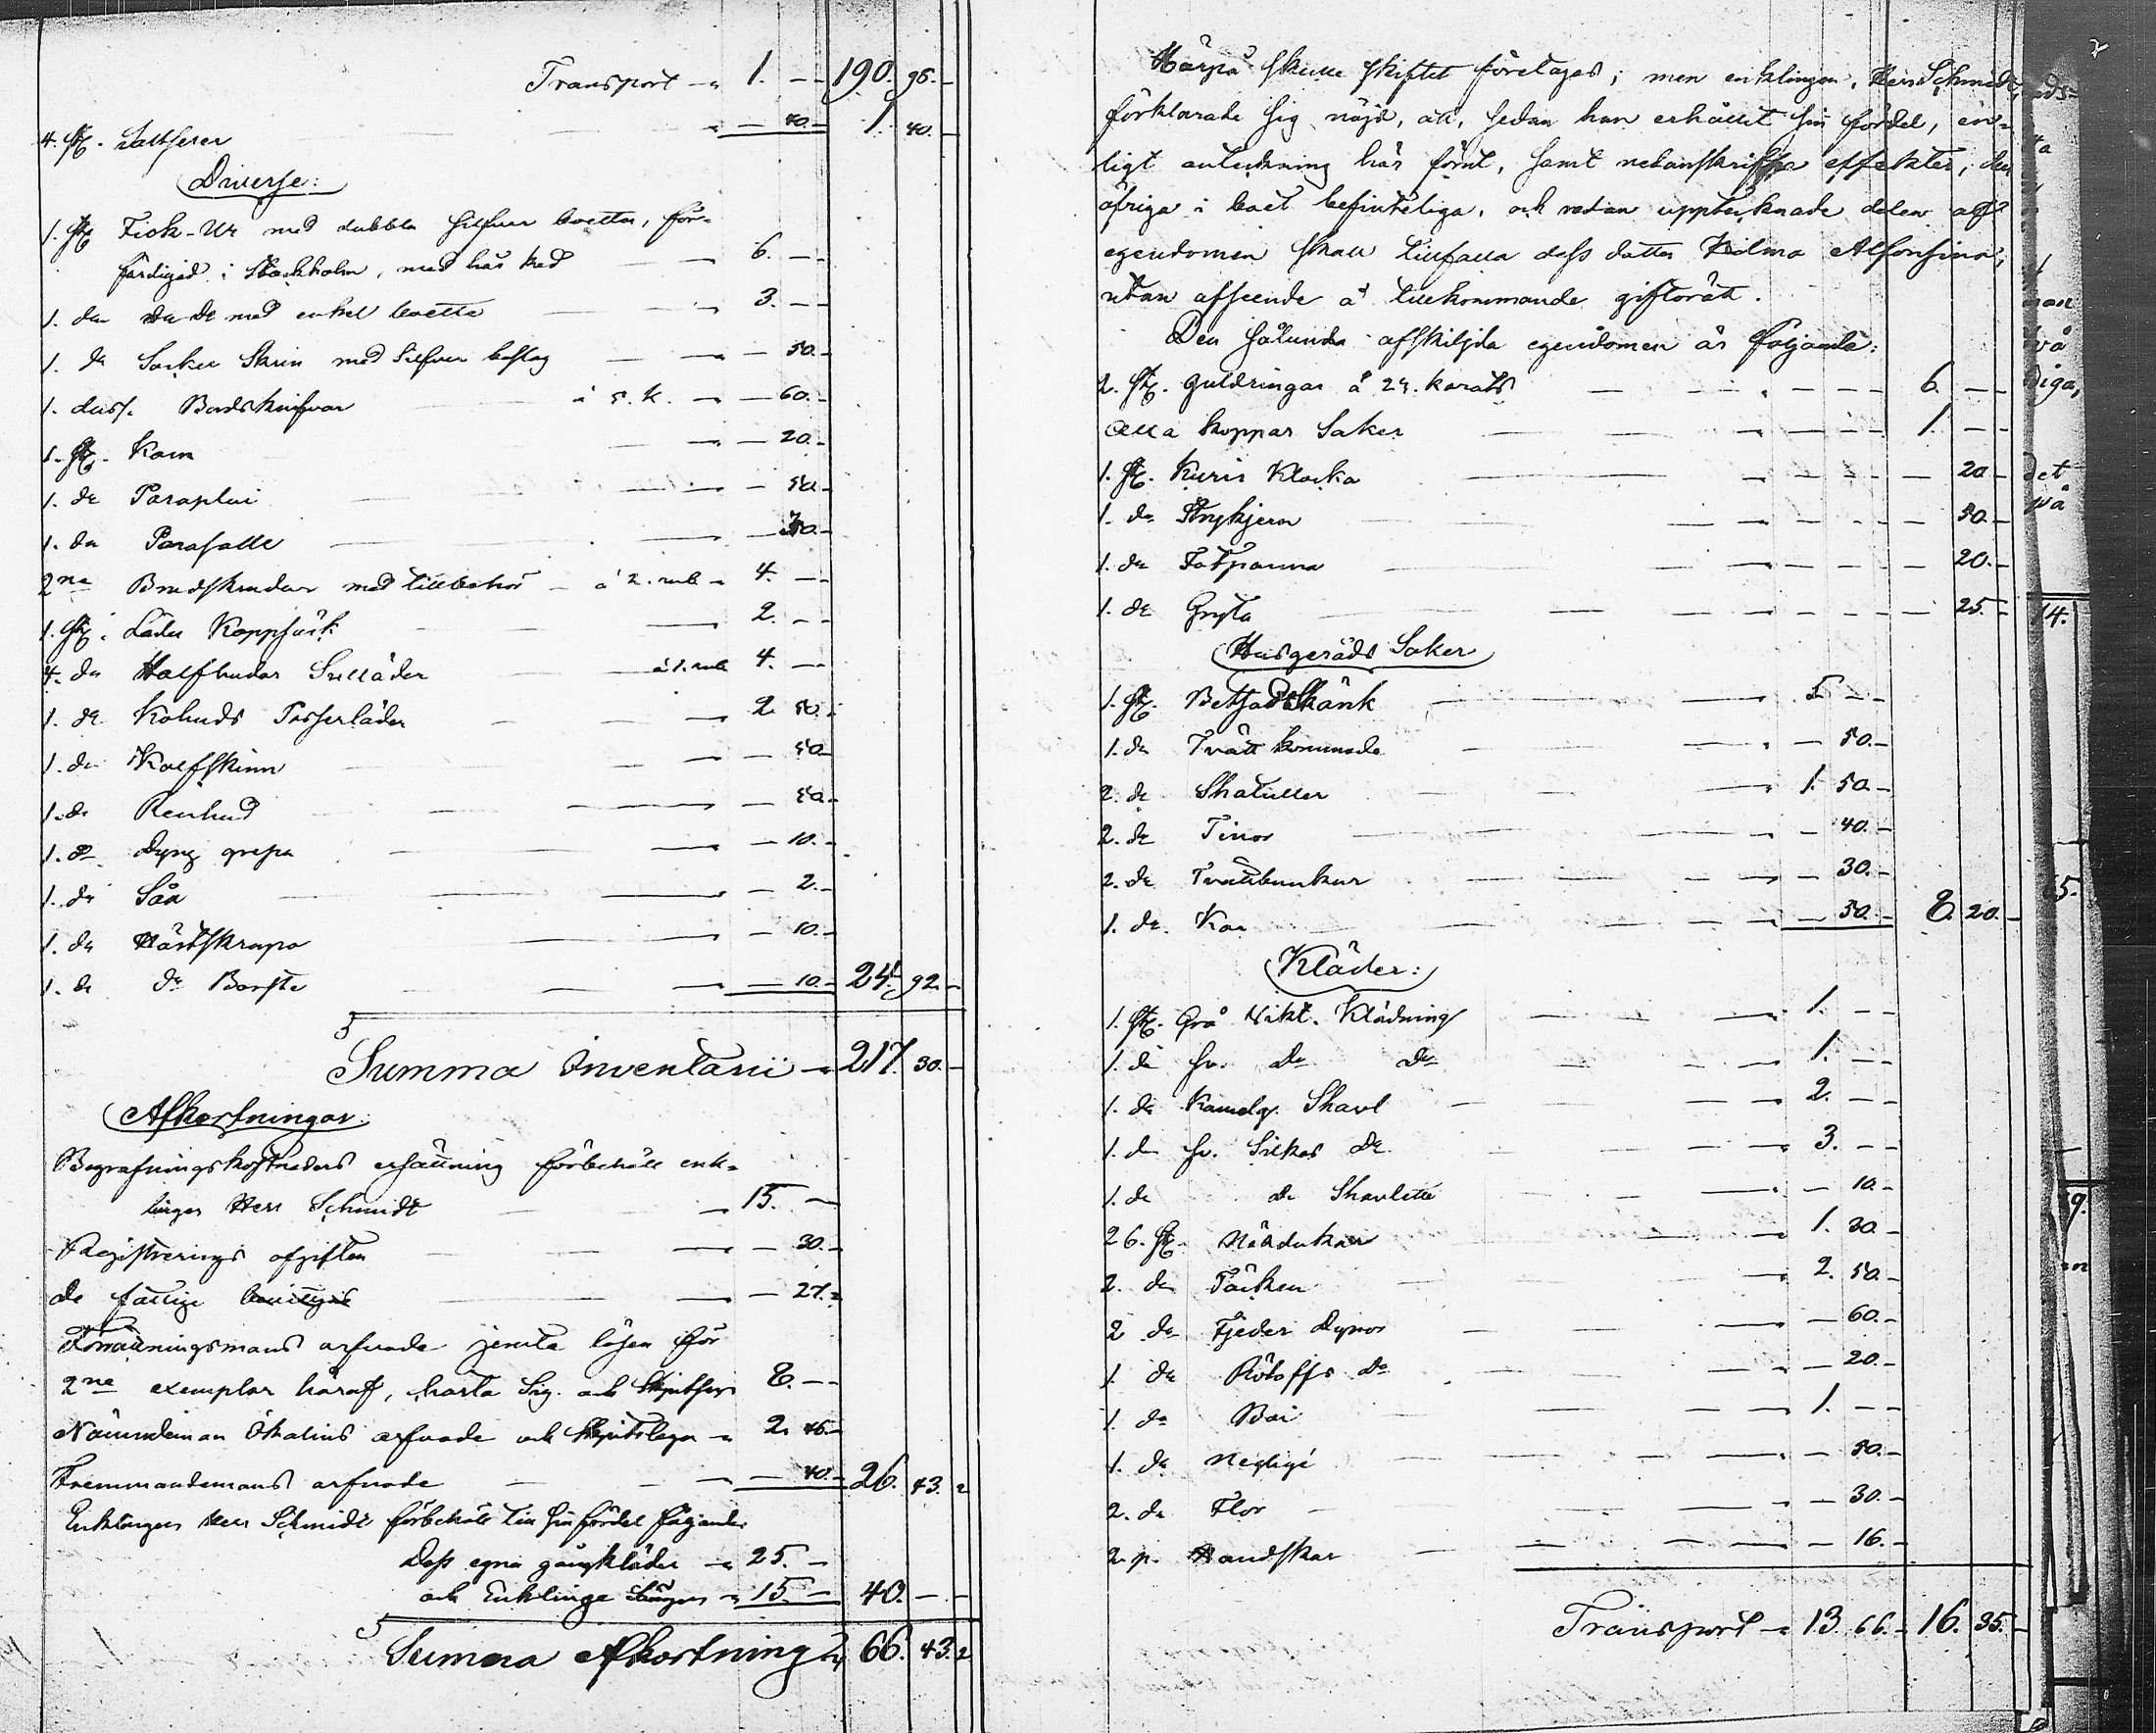 Transport 1. – – 190. 98. –
4. st. – 40. – 1. 40. –
Diverse:
1. st. Fick-Ur med dubbla silfver boetter, för-
färdigad i Stockholm, med hår ked 6. – –
1. do do do med enkel boette 3. – –
1. do Socker Skrin med Silfver beslag – 50. –
1. duss. Bordsknifvar à 5. k. – 60. –
1. st. Kam – 20. –
1. do Paraplui – 50. –
1. do Parasolle
2ne Brudskrudar med tillbehör – à 2. rub 4. – –
1. st. Läder Koppsäck 2. – –
4. do Halfhudar Sulläder à 1. rub 4. – –
1. do Kohuds läder 2 50. –
1. do Kalfskinn – 50. –
1. do Renhud – 50. –
1. do Dyng grepa – 10. –
1. do Såll – 2. –
1. do Hästskrapa – 10. –
1. do do Borste – 10. – 24. 92. –
Summa Inventarii 217. 30. –
Afkortningar:
Begrafningskostnaders ersättning förbehöll enk-
lingen Herr Schmidt 15. –
Registrerings afgiften – 30. –
De fattige – 27. 2
Förrättningsmans arfvode jemte lösen för
2ne exemplar häraf, Charta Sig. och Skjutspgr 8. – –
Nämndeman arfvode och Skjutslega 2. 46. –
Fremmandemans arfvode – 40. – 26. 43. 2
Enklingen Herr Schmidt förbehöll till sin fördel följande
Dess egna gångkläder 25. –
och Enklinge Sängen 15. – 40. – –
Summa Afkortning 66. 43. 2
Härpå skulle skiftet företagas; men enklingen, Herr Schmidt,
förklarade sig nöjd, att, sedan han erhållit sin fördel, en-
ligt anteckning här förut, samt nedanskrifne effekter, den
öfriga i boet befinteliga, och redan upptecknade delen af
egendomen skall tillfalla dess dotter Wilma Alfonsina,
utan afseende å tillkommande giftorätt.
Den sålunda afskiljda egendomen är följande:
2. st. Guldringar à 24. karats 6. – –
Alla koppar Saker 1. – –
1. st. Klocka – 20 –
1. do Strykjern – 50. –
1. do Fatpanna – 20. –
1. do Gryta – 25. –
Husgeråds Saker
1. st. Skänk 5 – –
1. do Tvätt kommode – 50. –
2. do Shatuller 1. 50. –
2. do Tinor – 40. –
2. do Tvättbunkar – 30. –
1. do Kar – 50. – 8. 20. –
Kläder:
1. st. Grå Klädning 1. – –
1. do sv. do do 1. – –
1. do Kamelg. Shavl 2. – –
1. do sv. Silkes do 3. – –
1. do do Shavlette – 10. –
26. st. Näsdukar 1. 30 –
2. do Täcken 2. 50. –
2 do Fjeder Dynor – 60. –
1. do do – 20. –
1. do Boi 1. – –
1. do Negligé – 50. –
2. do Flor – 30. –
2. p. Handskar – 16. –
Transport 13. 66. – 16. 35. –
2
det
på
14.